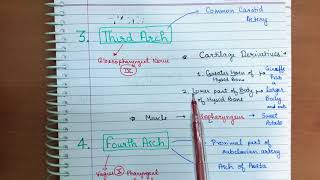 Common Carotid
Artery
3. Third Arch
Glossopharyngeal Nerve
IX
Cartilage Derivatives
1. Greater Horn of Hyoid Bone
Giraffe
Has
2. Lower part of Body of Hyoid Bone
Larger
Body
and eats
Muscle
Sweet Potato
4. Fourth Arch
Proximal part of
subclavian artery
Vagus X Pharyngeal
Arch of Aorta